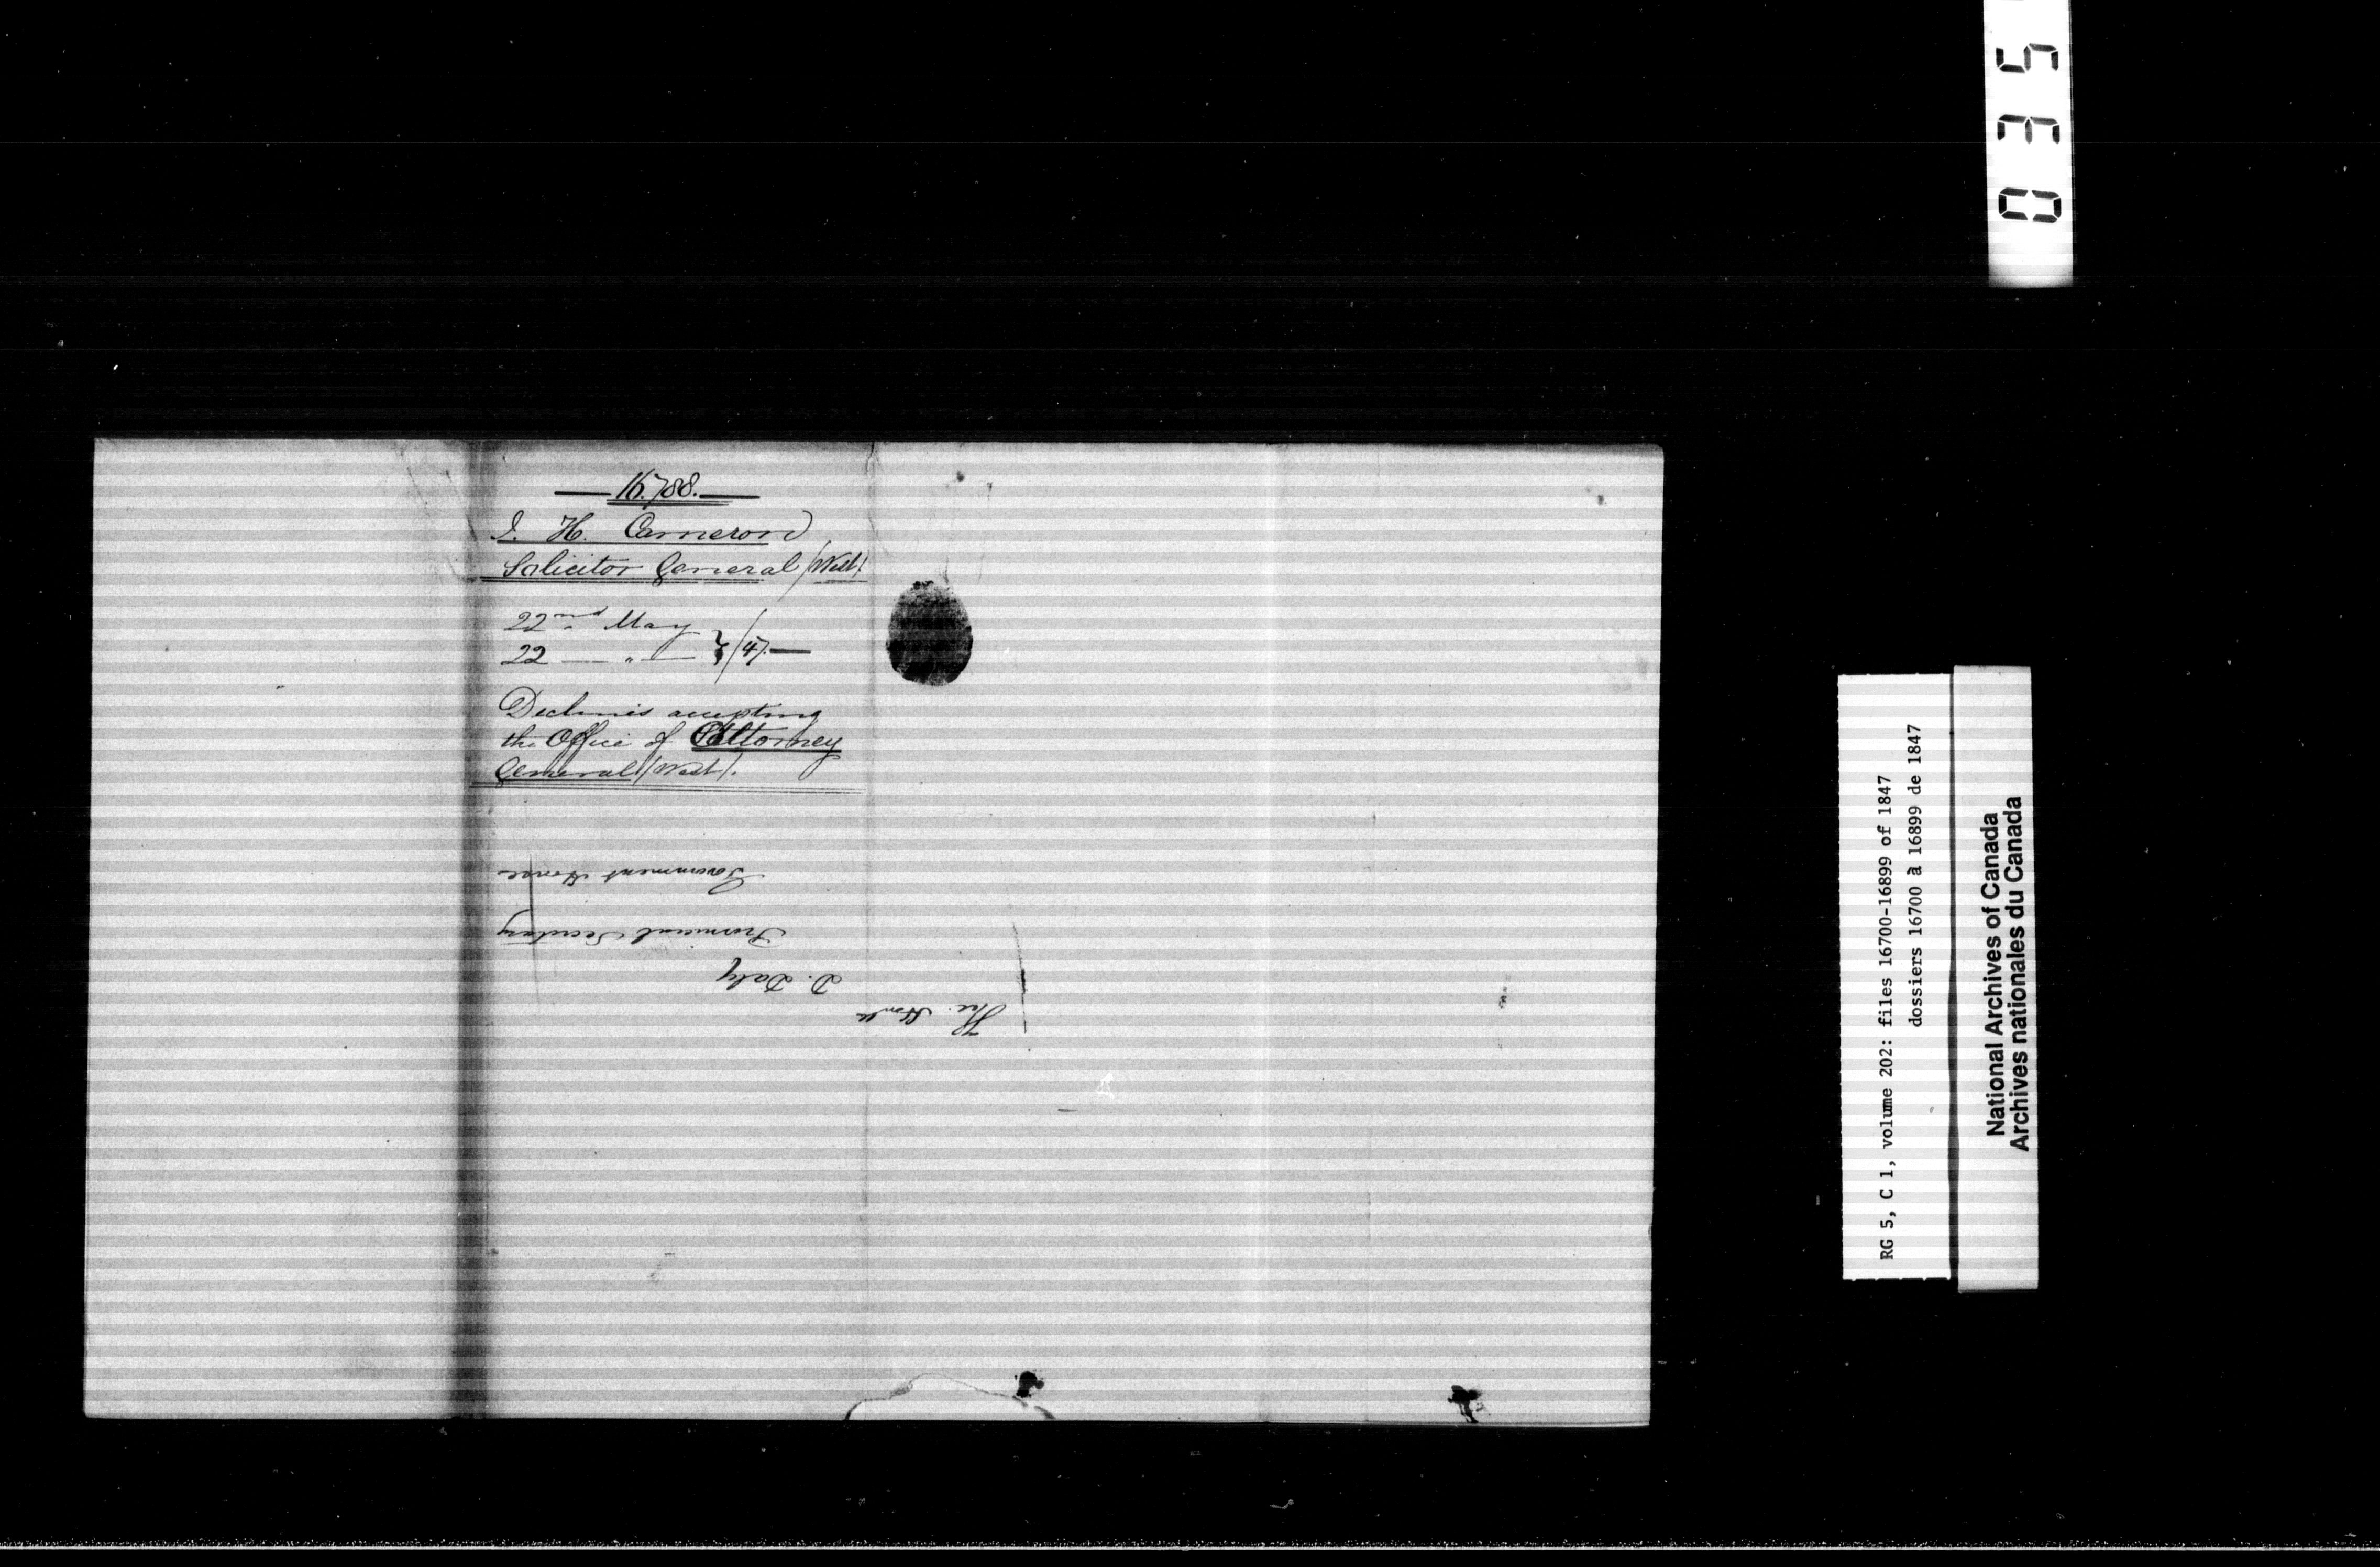 16.788.
J. H. Cameron
Solicitor General /West/.
22nd May
22 — " — } /47.—
Declines accepting
the Office of Attorney
General /West/.
The Honble
D. Daly
Provincial Secretary
Government House
035
RG 5, C 1, volume 202: files 16700-16899 of 1847
dossiers 16700 à 16899 de 1847
National Archives of Canada
Archives nationales du Canada